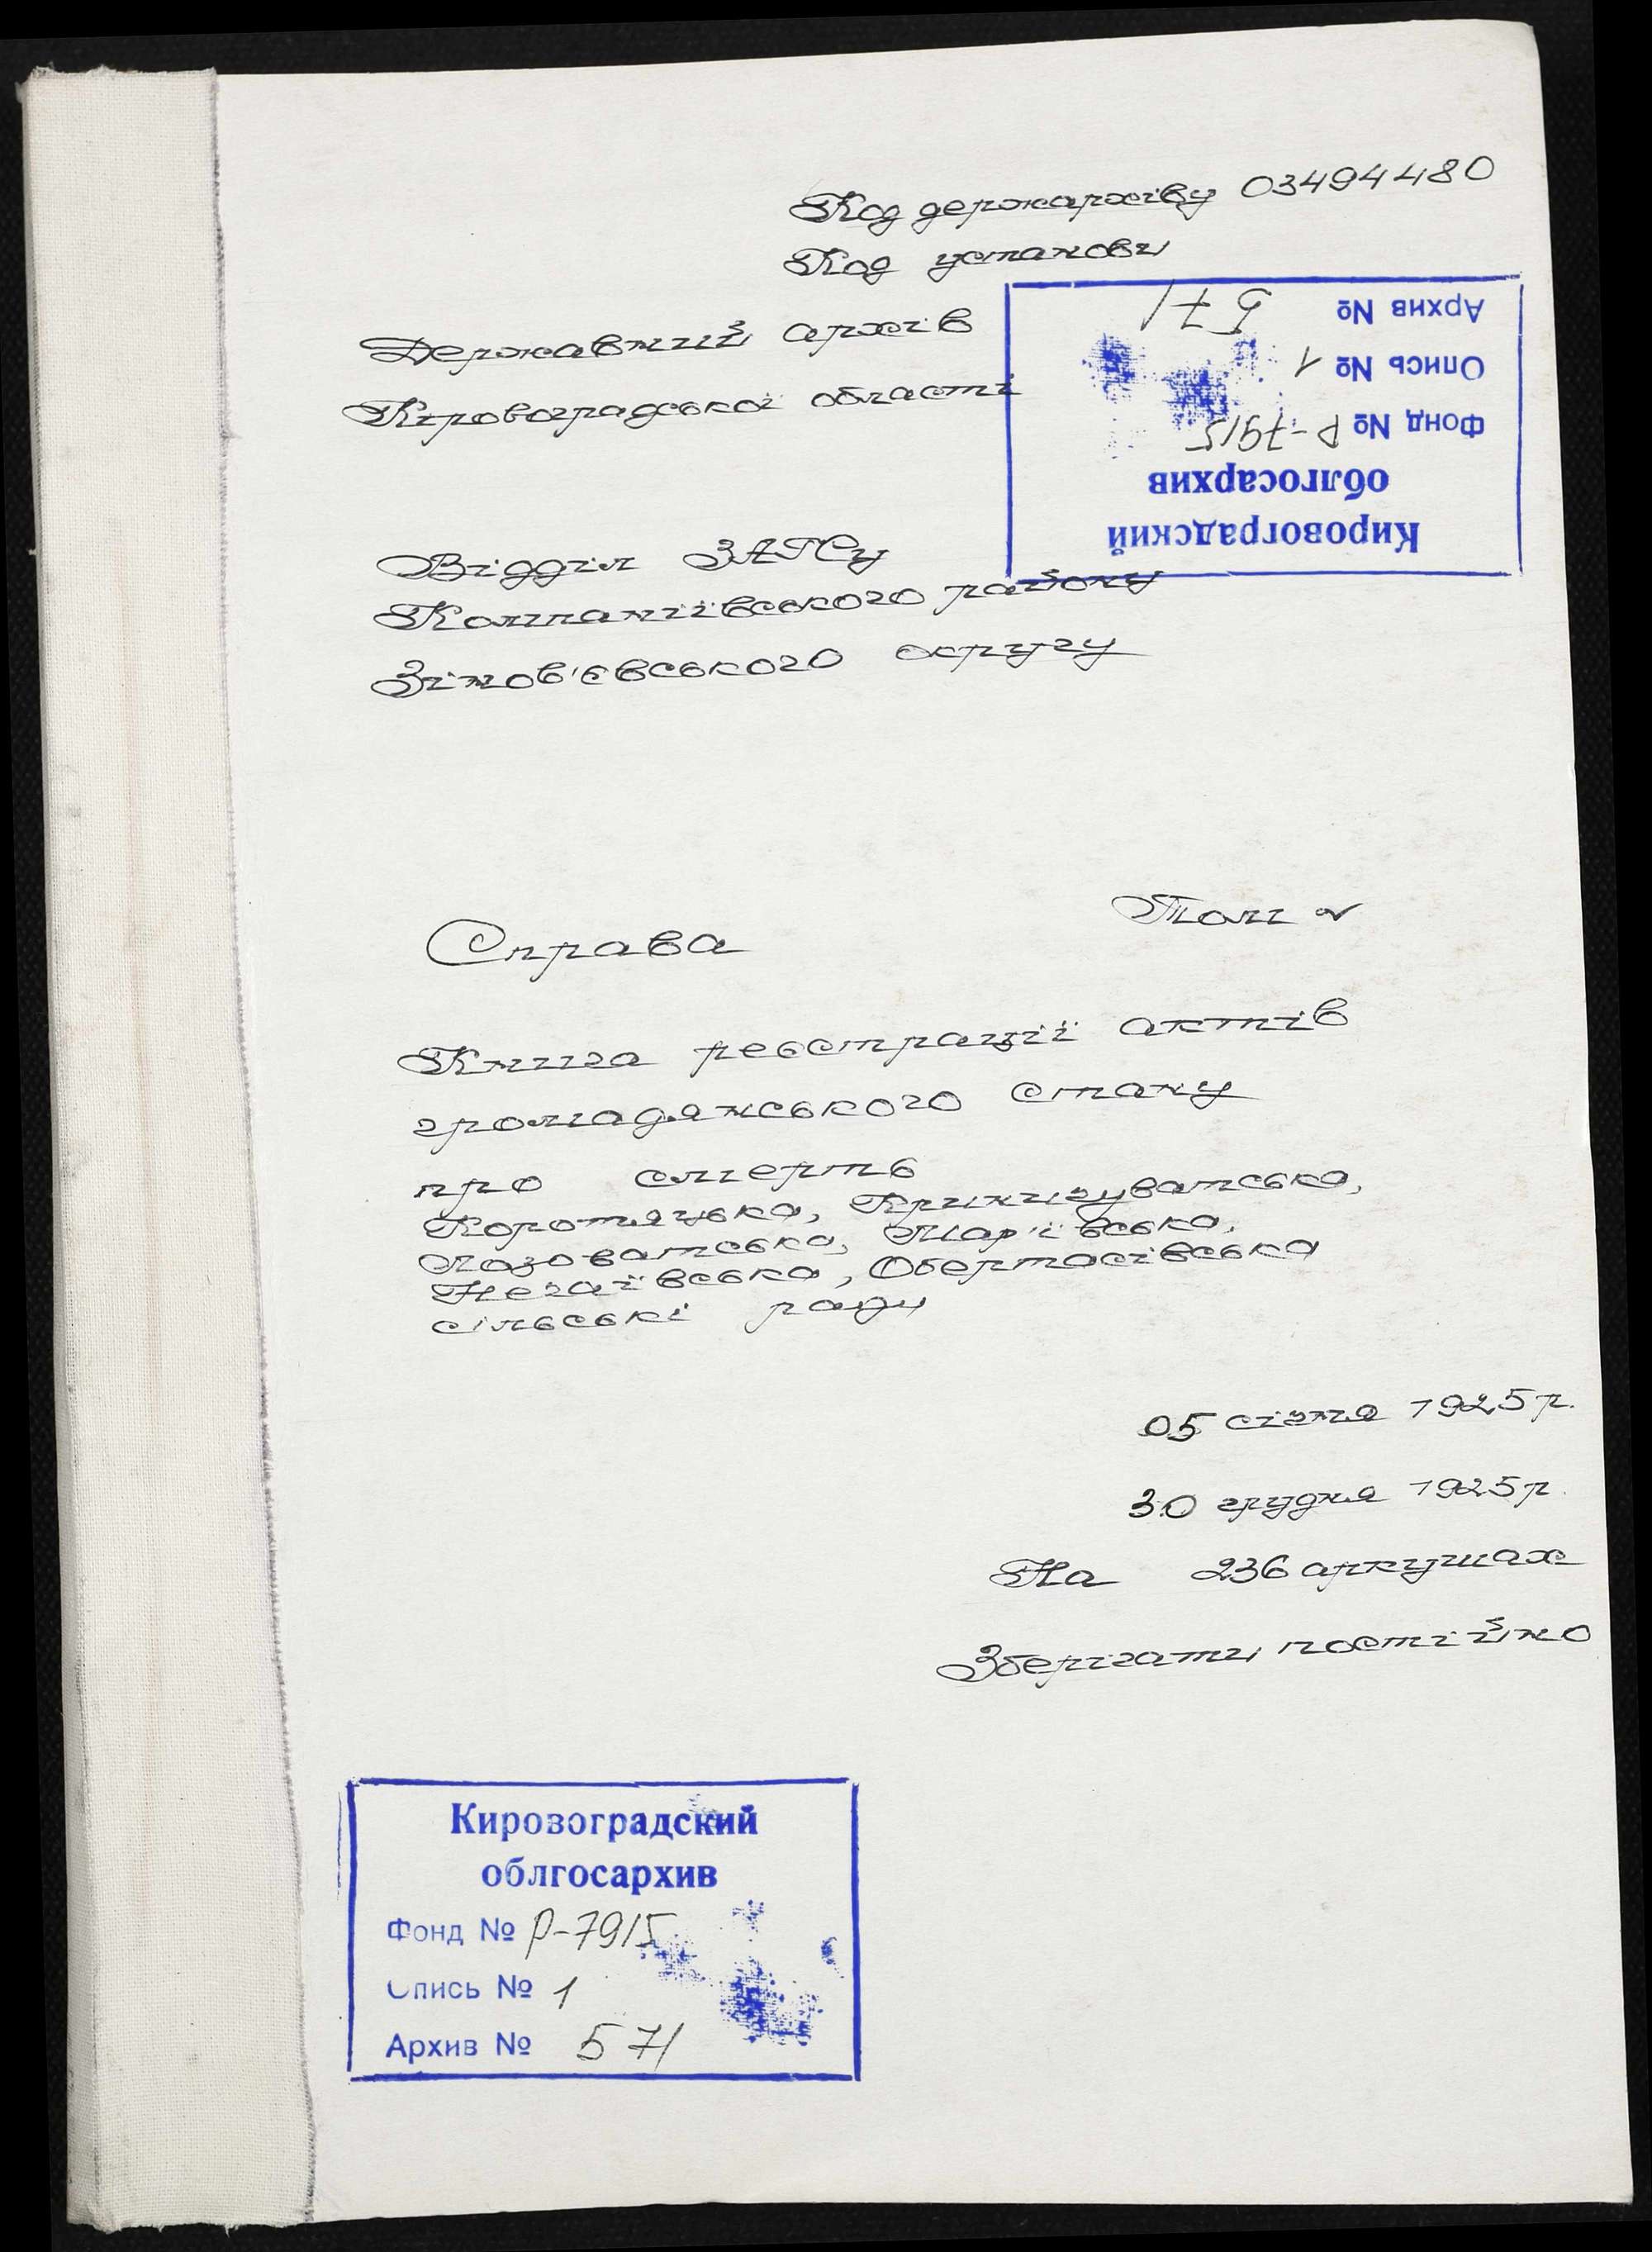 Код держархіву 03494480
Код установи
Державний архів
Кіровоградської області
Архив № 571
Опись № 1
Фонд № Р-7915
облгосархив
Кировоградский
Відділ ЗАГСу
Компаніївського району
Зінов'євського округу
Справа Том
Книга реєстрації актів
громадянського стану
про смерть
Коротяцька, Криничуватська,
Лозоватська, Мар'ївська,
Негаївська, Обертасівська
сільські ради
05 січня 1925 р.
30 грудня 1925 р.
На 236 аркушах
Зберігати постійно
Кировоградский
облгосархив
Фонд № Р-7915
Опись № 1
Архив № 571